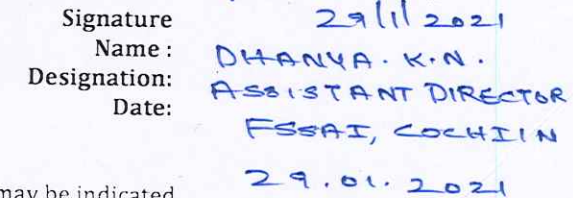 Signature 29/1/2021
Name : DHANYA. K.N.
Designation: ASSISTANT DIRECTOR
Date:
FSSAI, COCHIIN
29.01.2021
may be indicated